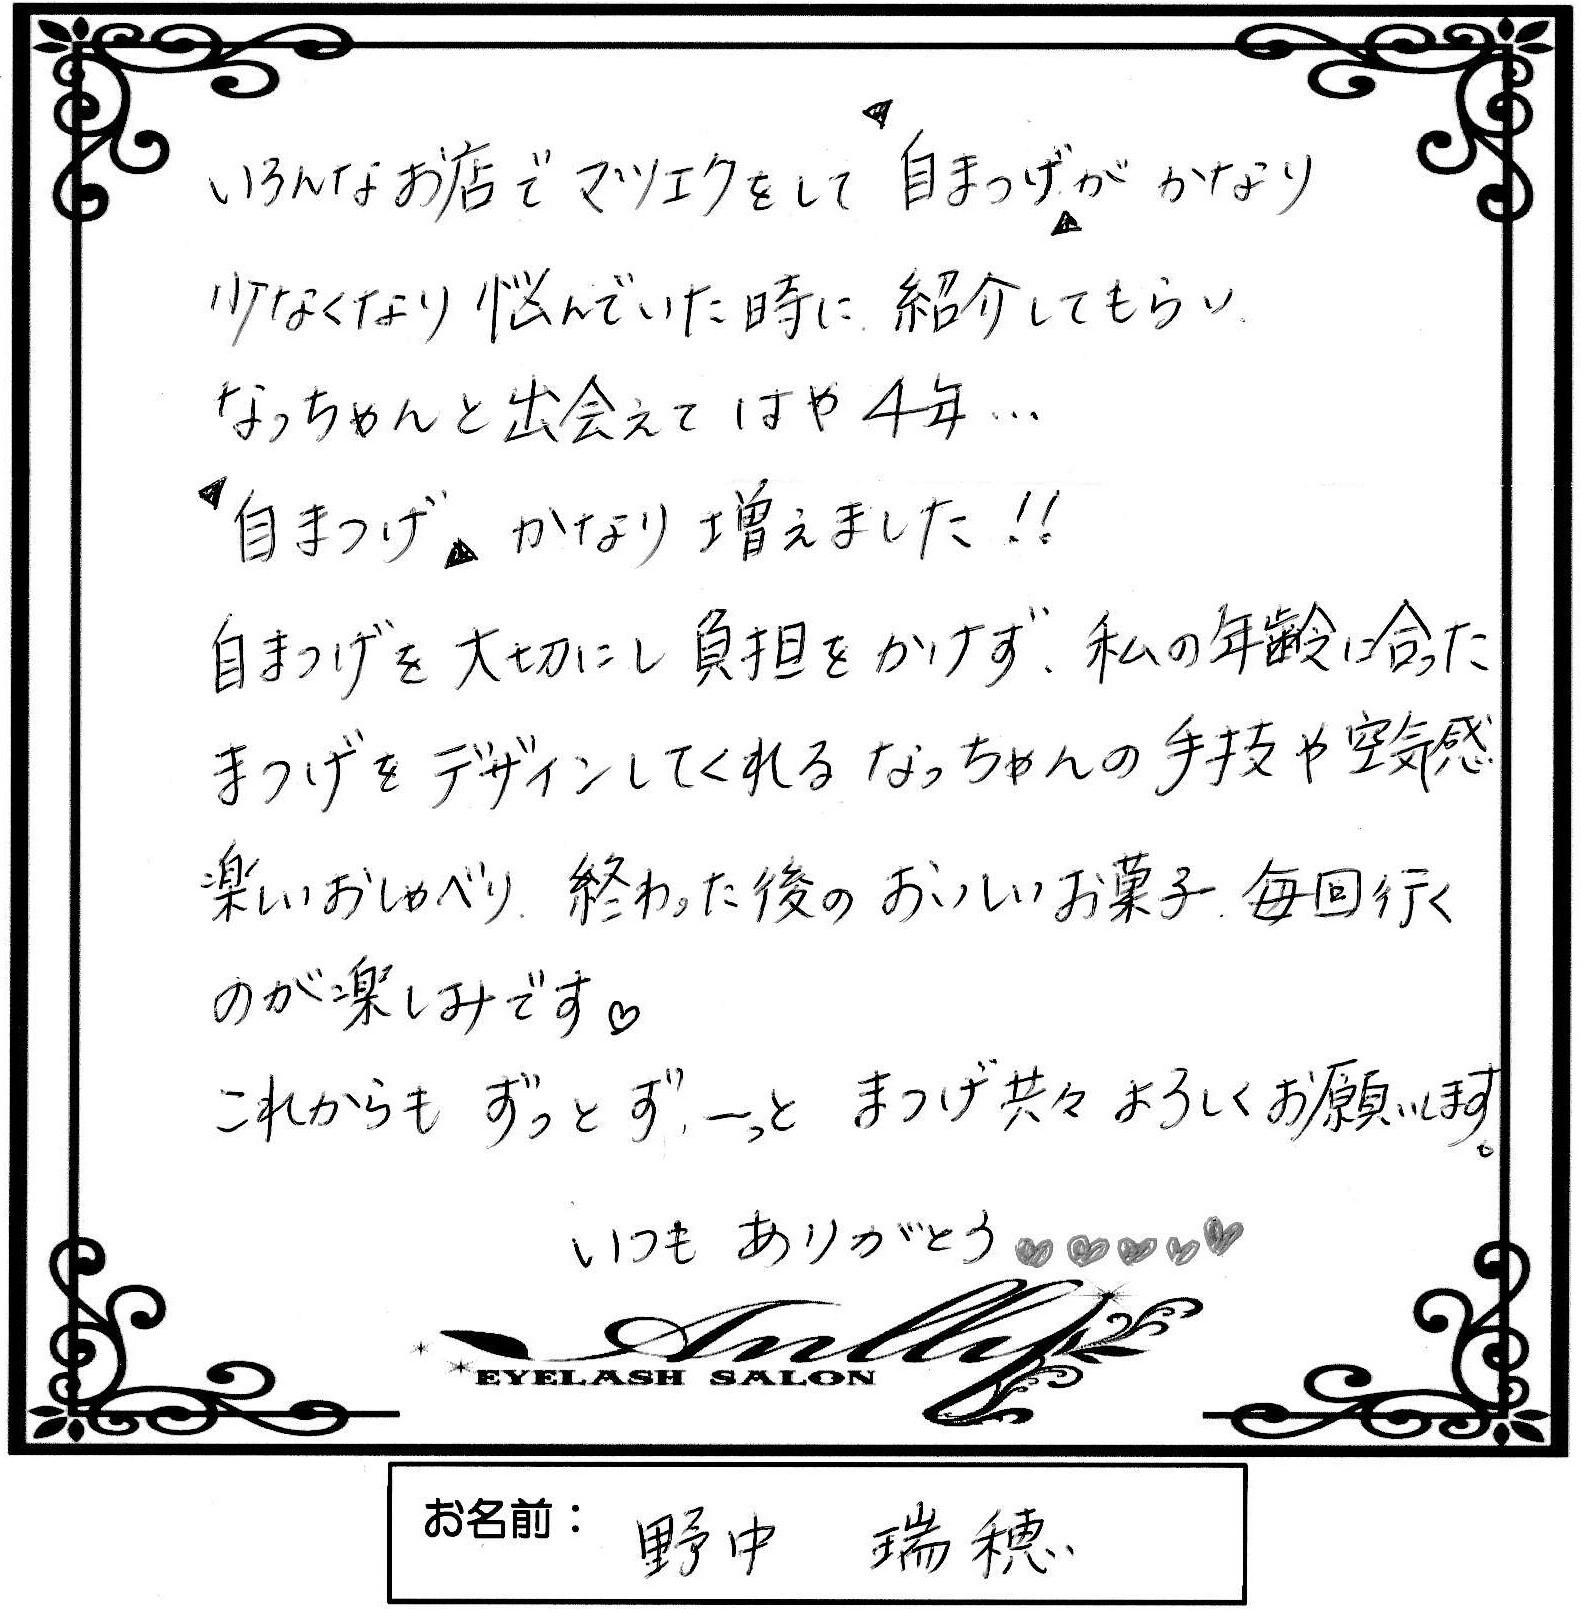 いろんなお店でマツエクをして 〝自まつげ〟が かなり
少なくなり 悩んでいた時に、紹介してもらい、
なっちゃんと出会えて はや 4年…
〝自まつげ〟かなり増えました!!
自まつげを大切にし負担をかけず、私の年齢に合った
まつげをデザインしてくれる なっちゃんの手技や空気感
楽しいおしゃべり、終わった後のおいしいお菓子、毎回行く
のが楽しみです♡
これからも ずっとず、ーっと まつげ共々よろしくお願いします。
いつも ありがとう♥♥♥♥♥
Anlly
EYELASH SALON
お名前: 野中 瑞穂